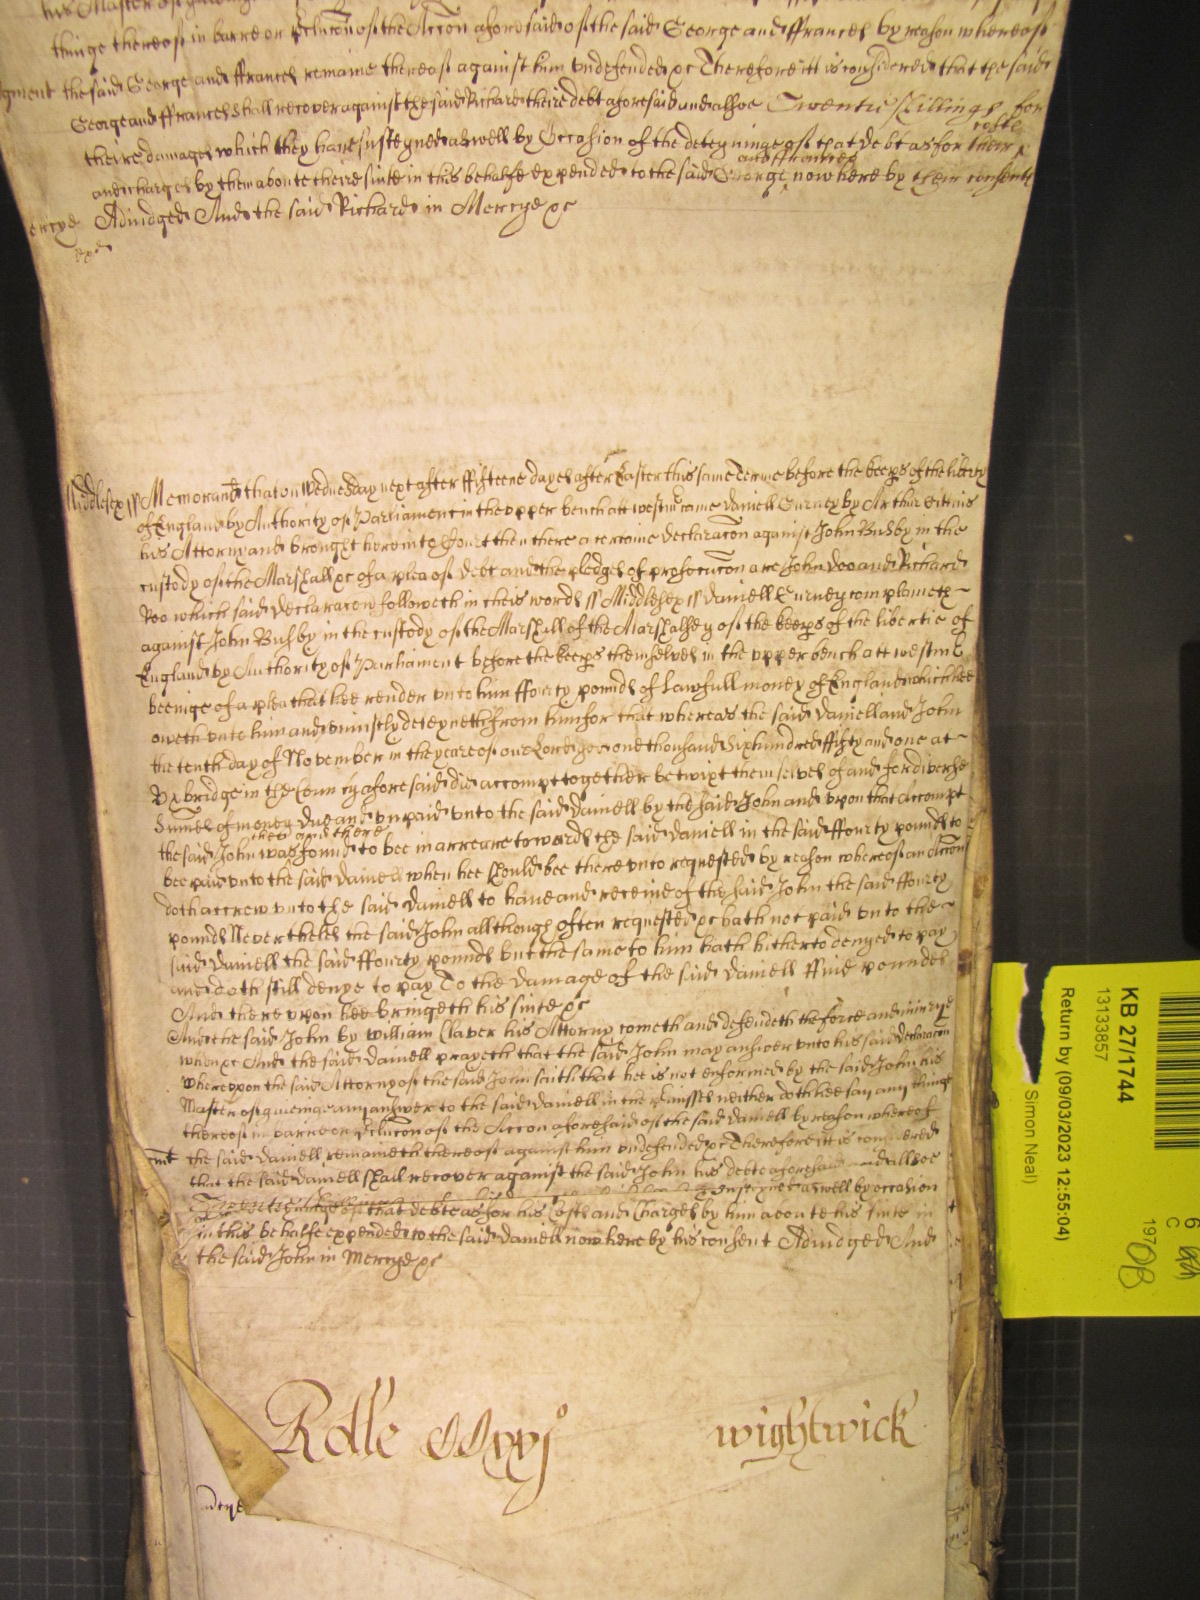 his Master of giveing
thinge thereof in barre or Preclucon of the Accon aforesaid of the said George and ffrances by reason whereof
the said George and ffrances remaine thereof against him undefended &c Therefore itt is considered that the said
George and ffrances shall recover against the said Richard theire debt aforesaid and alsoe Twentie shillings for
theire damages which they have susteyned aswell by Occasion of the deteyninge of that debt as for their costs
and charges by them aboute theire suite in this behalfe expended to the said George and ffrances now here by their consente
Adiudged And the said Richard in Mercye &c
Middlesex ss Memorand that on Wednesday next after ffifteene dayes after Easter this same Terme before the keeps of the liberty
of England by Authority of Parliament in the upper bench att westm came Daniell Gurney by Arthur
his Attorny and brought here into Court then there a certeine declaracon against John Busby in the
custody of the Marshall &c of a plea of Debt and the pledges of prosecucon are John Doo and Richard
Roo which said declaracon followeth in theis words ss Middlesex ss Daniell Gurney complaineth
against John Busby in the custody of the Marshall of the Marshalsey of the keeps of the libertie of
England by Authority of Parliament before the keeps themselves in the upper bench att westm
beeinge of a plea that hee render unto him ffourty pounds of lawfull money of England which hee
oweth unto him and uniustly deteyneth from him for that whereas the said Daniell and John
the tenth day of November in the yeare of our Lord god one thousand six hundred ffifty and one at
Uxbridge in the County aforesaid did accompt together betwixt themselves of and for diverse
Summes of money due and unpaid unto the said Daniell by the said John and upon that accompt
the said John was then and there found to bee in arreare towards the said Daniell in the said ffourty pounds to
bee paid unto the said Daniell when hee should bee there unto requested by reason whereof an Accon
doth accrew unto the said Daniell to have and receive of the said John the said ffourty
pounds Neverthelesse the said John allthough often requested &c hath not paid unto the
said Daniell the said ffourty pounds but the same to him hath hitherto denyed to pay
and doth still denye to pay To the damage of the said Daniell ffive pounds
And there upon hee bringeth his suite &c
And the said John by William Claver his Attorny cometh and defendeth the force and iniurye
when &c And the said Daniell prayeth that the said John may answer unto his said declaracon
whereupon the said Attorny of the said John saith that hee is not enformed by the said John his
Master of giveinge any answer to the said Daniell in the premisses neither doth hee say any thinge
thereof in barre or Preclucon of the Accon aforesaid of the said Daniell by reason whereof
the said Daniell remaineth thereof against him undefended &c Therefore itt is considered
that the said Daniell shall recover against the said John his debt aforesaid and allsoe
aswell by occasion
of that debt as for his Costs and Charges by him aboute his suite in
in this behalfe expended to the said Daniell now here by his consent Adiudged And
the said John in Mercye &c
Rolle
wightwick
KB 27/1744
13133857
Return by (09/03/2023 12:55:04)
Simon Neal)